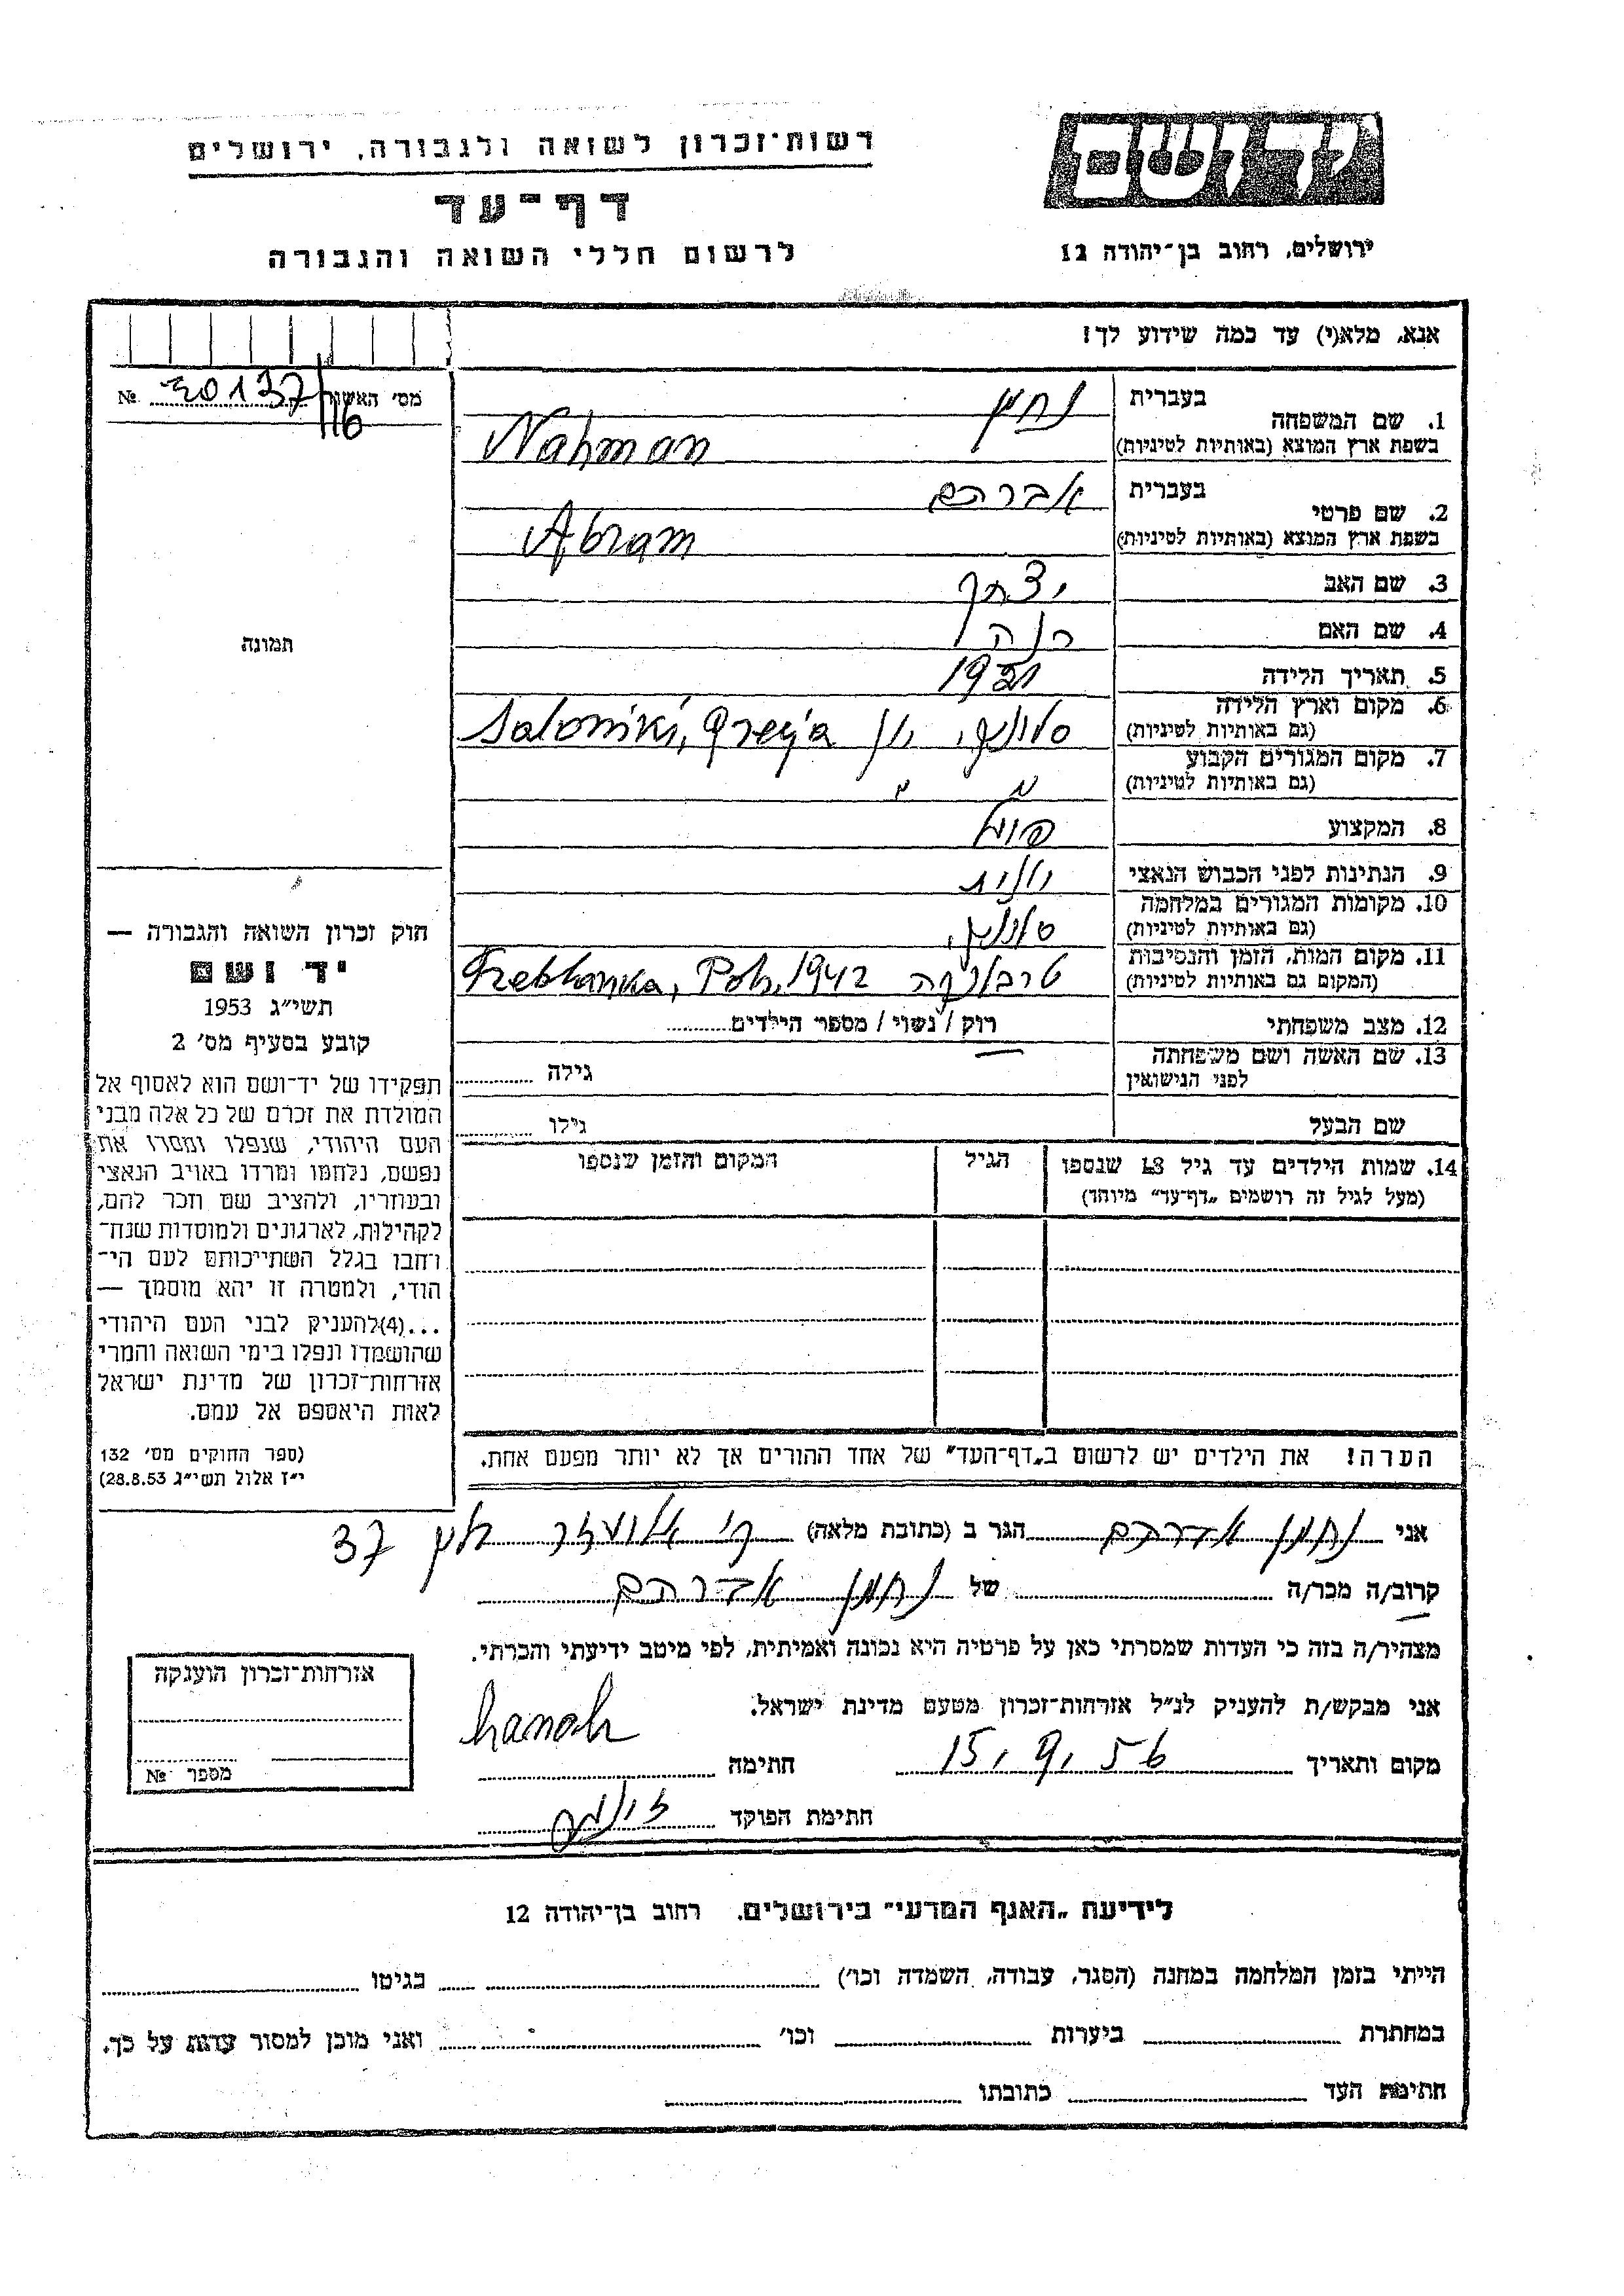 רשות־זכרון לשואה ולגבורה, ירושלים
דף־עד
לרשום חללי השואה והגבורה
יד ושם
ירושלים, רחוב בן־יהודה 12
אנא, מלא(י) עד כמה שידוע לך!
מס׳ האשור 30137/16 №
תמונה
1. שם המשפחה
בעברית נחמן
בשפת ארץ המוצא (באותיות לטיניות) Nahman
2. שם פרטי
בעברית אברהם
בשפת ארץ המוצא (באותיות לטיניות) Abram
3. שם האב יצחק
4. שם האם
5. תאריך הלידה 1921
6. מקום וארץ הלידה
(גם באותיות לטיניות) סלוניקי, יון Saloniki, Grecja
7. מקום המגורים הקבוע
(גם באותיות לטיניות) " "
8. המקצוע פועל
9. הנתינות לפני הכבוש הנאצי יונית
10. מקומות המגורים במלחמה
(גם באותיות לטיניות) סלוניקי
11. מקום המות, הזמן והנסיבות
(המקום גם באותיות לטיניות) טרבלינקה Treblanka, Pol., 1942
12. מצב משפחתי רוק / נשוי / מספר הילדים
13. שם האשה ושם משפחתה
לפני הנישואין גילה
שם הבעל גילו
14. שמות הילדים עד גיל 18 שנספו
(מעל לגיל זה רושמים „דף־עד” מיוחד)
הגיל
המקום והזמן שנספו
הערה! את הילדים יש לרשום ב„דף־העד” של אחד ההורים אך לא יותר מפעם אחת.
חוק זכרון השואה והגבורה —
יד ושם
תשי״ג 1953
קובע בסעיף מס׳ 2
תפקידו של יד־ושם הוא לאסוף אל
המולדת את זכרם של כל אלה מבני
העם היהודי, שנפלו ומסרו את
נפשם, נלחמו ומרדו באויב הנאצי
ובעוזריו, ולהציב שם וזכר להם,
לקהילות, לארגונים ולמוסדות שנח־
רחבו בגלל השתייכותם לעם הי־
הודי, ולמטרה זו יהא מוסמך —
...(4)להעניק לבני העם היהודי
שהושמדו ונפלו בימי השואה והמרי
אזרחות־זכרון של מדינת ישראל
לאות היאספם אל עמם.
(ספר החוקים מס׳ 132
י״ז אלול תשי״ג 28.8.53)
אני נחמן אברהם הגר ב (כתובת מלאה) 37
קרוב/ה מכר/ה של נחמן אברהם
מצהיר/ה בזה כי העדות שמסרתי כאן על פרטיה היא נכונה ואמיתית, לפי מיטב ידיעתי והכרתי.
אני מבקש/ת להעניק לנ״ל אזרחות־זכרון מטעם מדינת ישראל.
מקום ותאריך 15,9,56 חתימה hanah
חתימת הפוקד
אזרחות־זכרון הוענקה
מספר №
לידיעת „האגף המדעי” בירושלים, רחוב בן־יהודה 12
הייתי בזמן המלחמה במחנה (הסגר, עבודה, השמדה וכו׳) בגיטו
במחתרת ביערות וכו׳ ואני מוכן למסור עדות על כך.
חתימת העד כתובתו